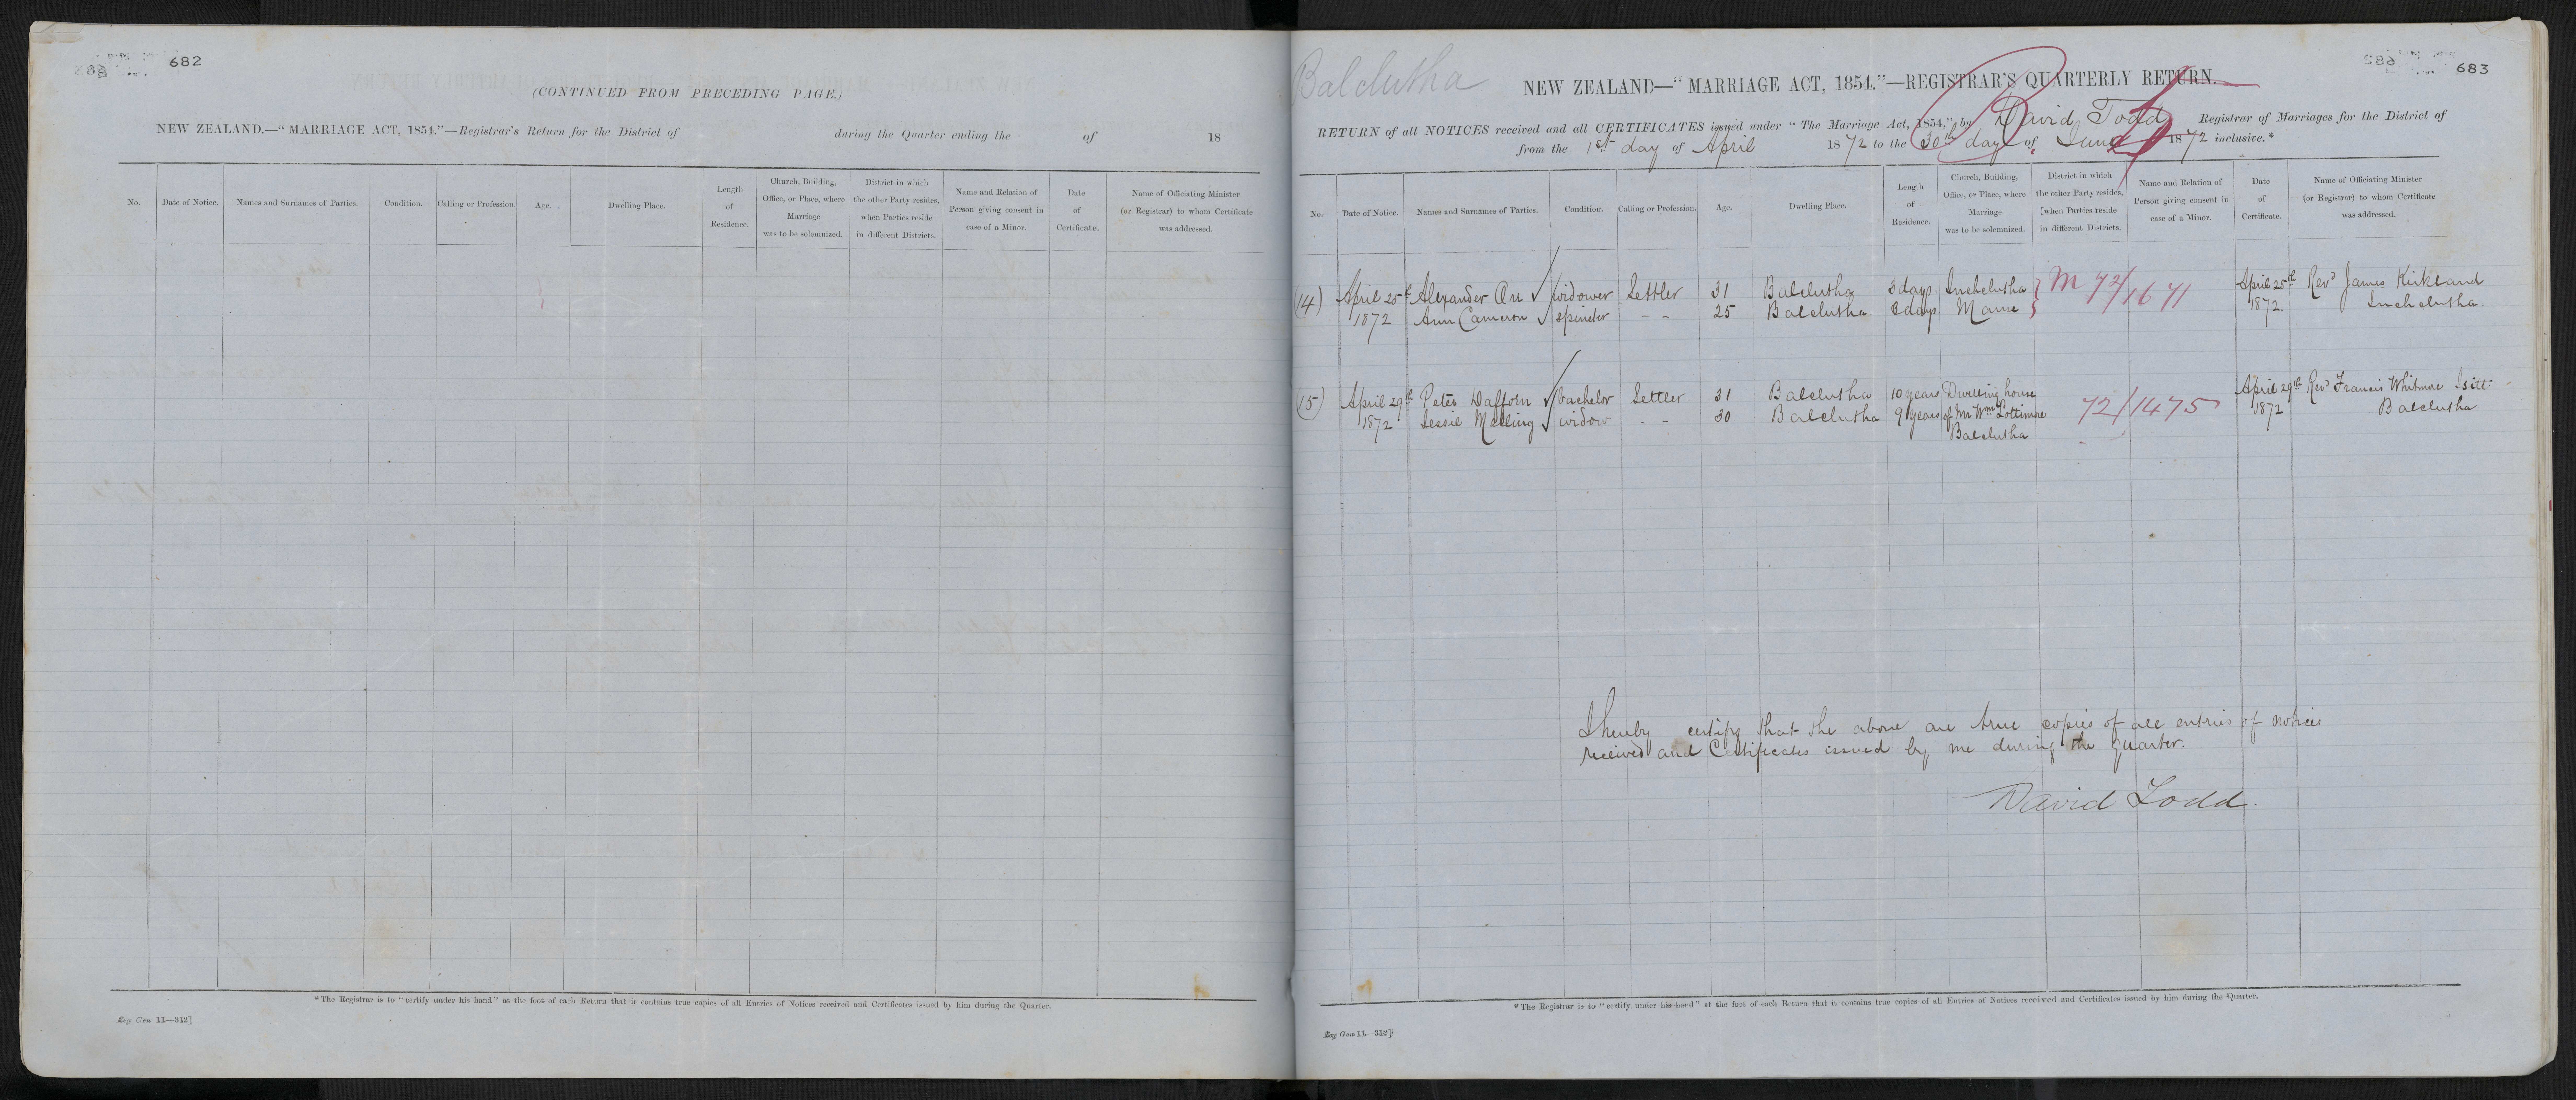 682
(CONTINUED FROM PRECEDING PAGE.)
NEW ZEALAND.—"MARRIAGE ACT, 1854."—Registrar's Return for the District of during the Quarter ending the of 18
No. Date of Notice. Names and Surnames of Parties. Condition. Calling or Profession. Age. Dwelling Place. Length of Residence. Church, Building, Office, or Place, where Marriage was to be solemnized. District in which the other Party resides, when Parties reside in different Districts. Name and Relation of Person giving consent in case of a Minor. Date of Certificate. Name of Officiating Minister (or Registrar) to whom Certificate was addressed.
*The Registrar is to "certify under his hand" at the foot of each Return that it contains true copies of all Entries of Notices received and Certificates issued by him during the Quarter.
Reg. Gen 11—312]
683
Balclutha
NEW ZEALAND—"MARRIAGE ACT, 1854."—REGISTRAR'S QUARTERLY RETURN.
RETURN of all NOTICES received and all CERTIFICATES issued under "The Marriage Act, 1854," by David Todd Registrar of Marriages for the District of
from the 1st day of April 1872 to the 30th day of June 1872 inclusive.*
No. Date of Notice. Names and Surnames of Parties. Condition. Calling or Profession. Age. Dwelling Place. Length of Residence. Church, Building, Office, or Place, where Marriage was to be solemnized. District in which the other Party resides, when Parties reside in different Districts. Name and Relation of Person giving consent in case of a Minor. Date of Certificate. Name of Officiating Minister (or Registrar) to whom Certificate was addressed.
(14) April 25th Alexander Orr widower Settler 31 Balclutha 3 days Inchclutha M 72/1671 April 25th Revd James Kirkland
1872 Ann Cameron spinster - - 25 Balclutha days Manse 1872. Inchclutha.
(15) April 29th Peter Dafforn bachelor Settler 31 Balclutha 10 years Dwelling house 72/1475 April 29th Revd Francis Whitmore Isitt
1872 Jessie Melling widow - - 30 Balclutha 9 years of Mr Wm Lottimore 1872 Balclutha
Balclutha
I hereby certify that the above are true copies of all entries of notices
received and Certificates issued by me during the quarter.
David Todd.
*The Registrar is to "certify under his hand" at the foot of each Return that it contains true copies of all Entries of Notices received and Certificates issued by him during the Quarter.
Reg Gen 11—312]